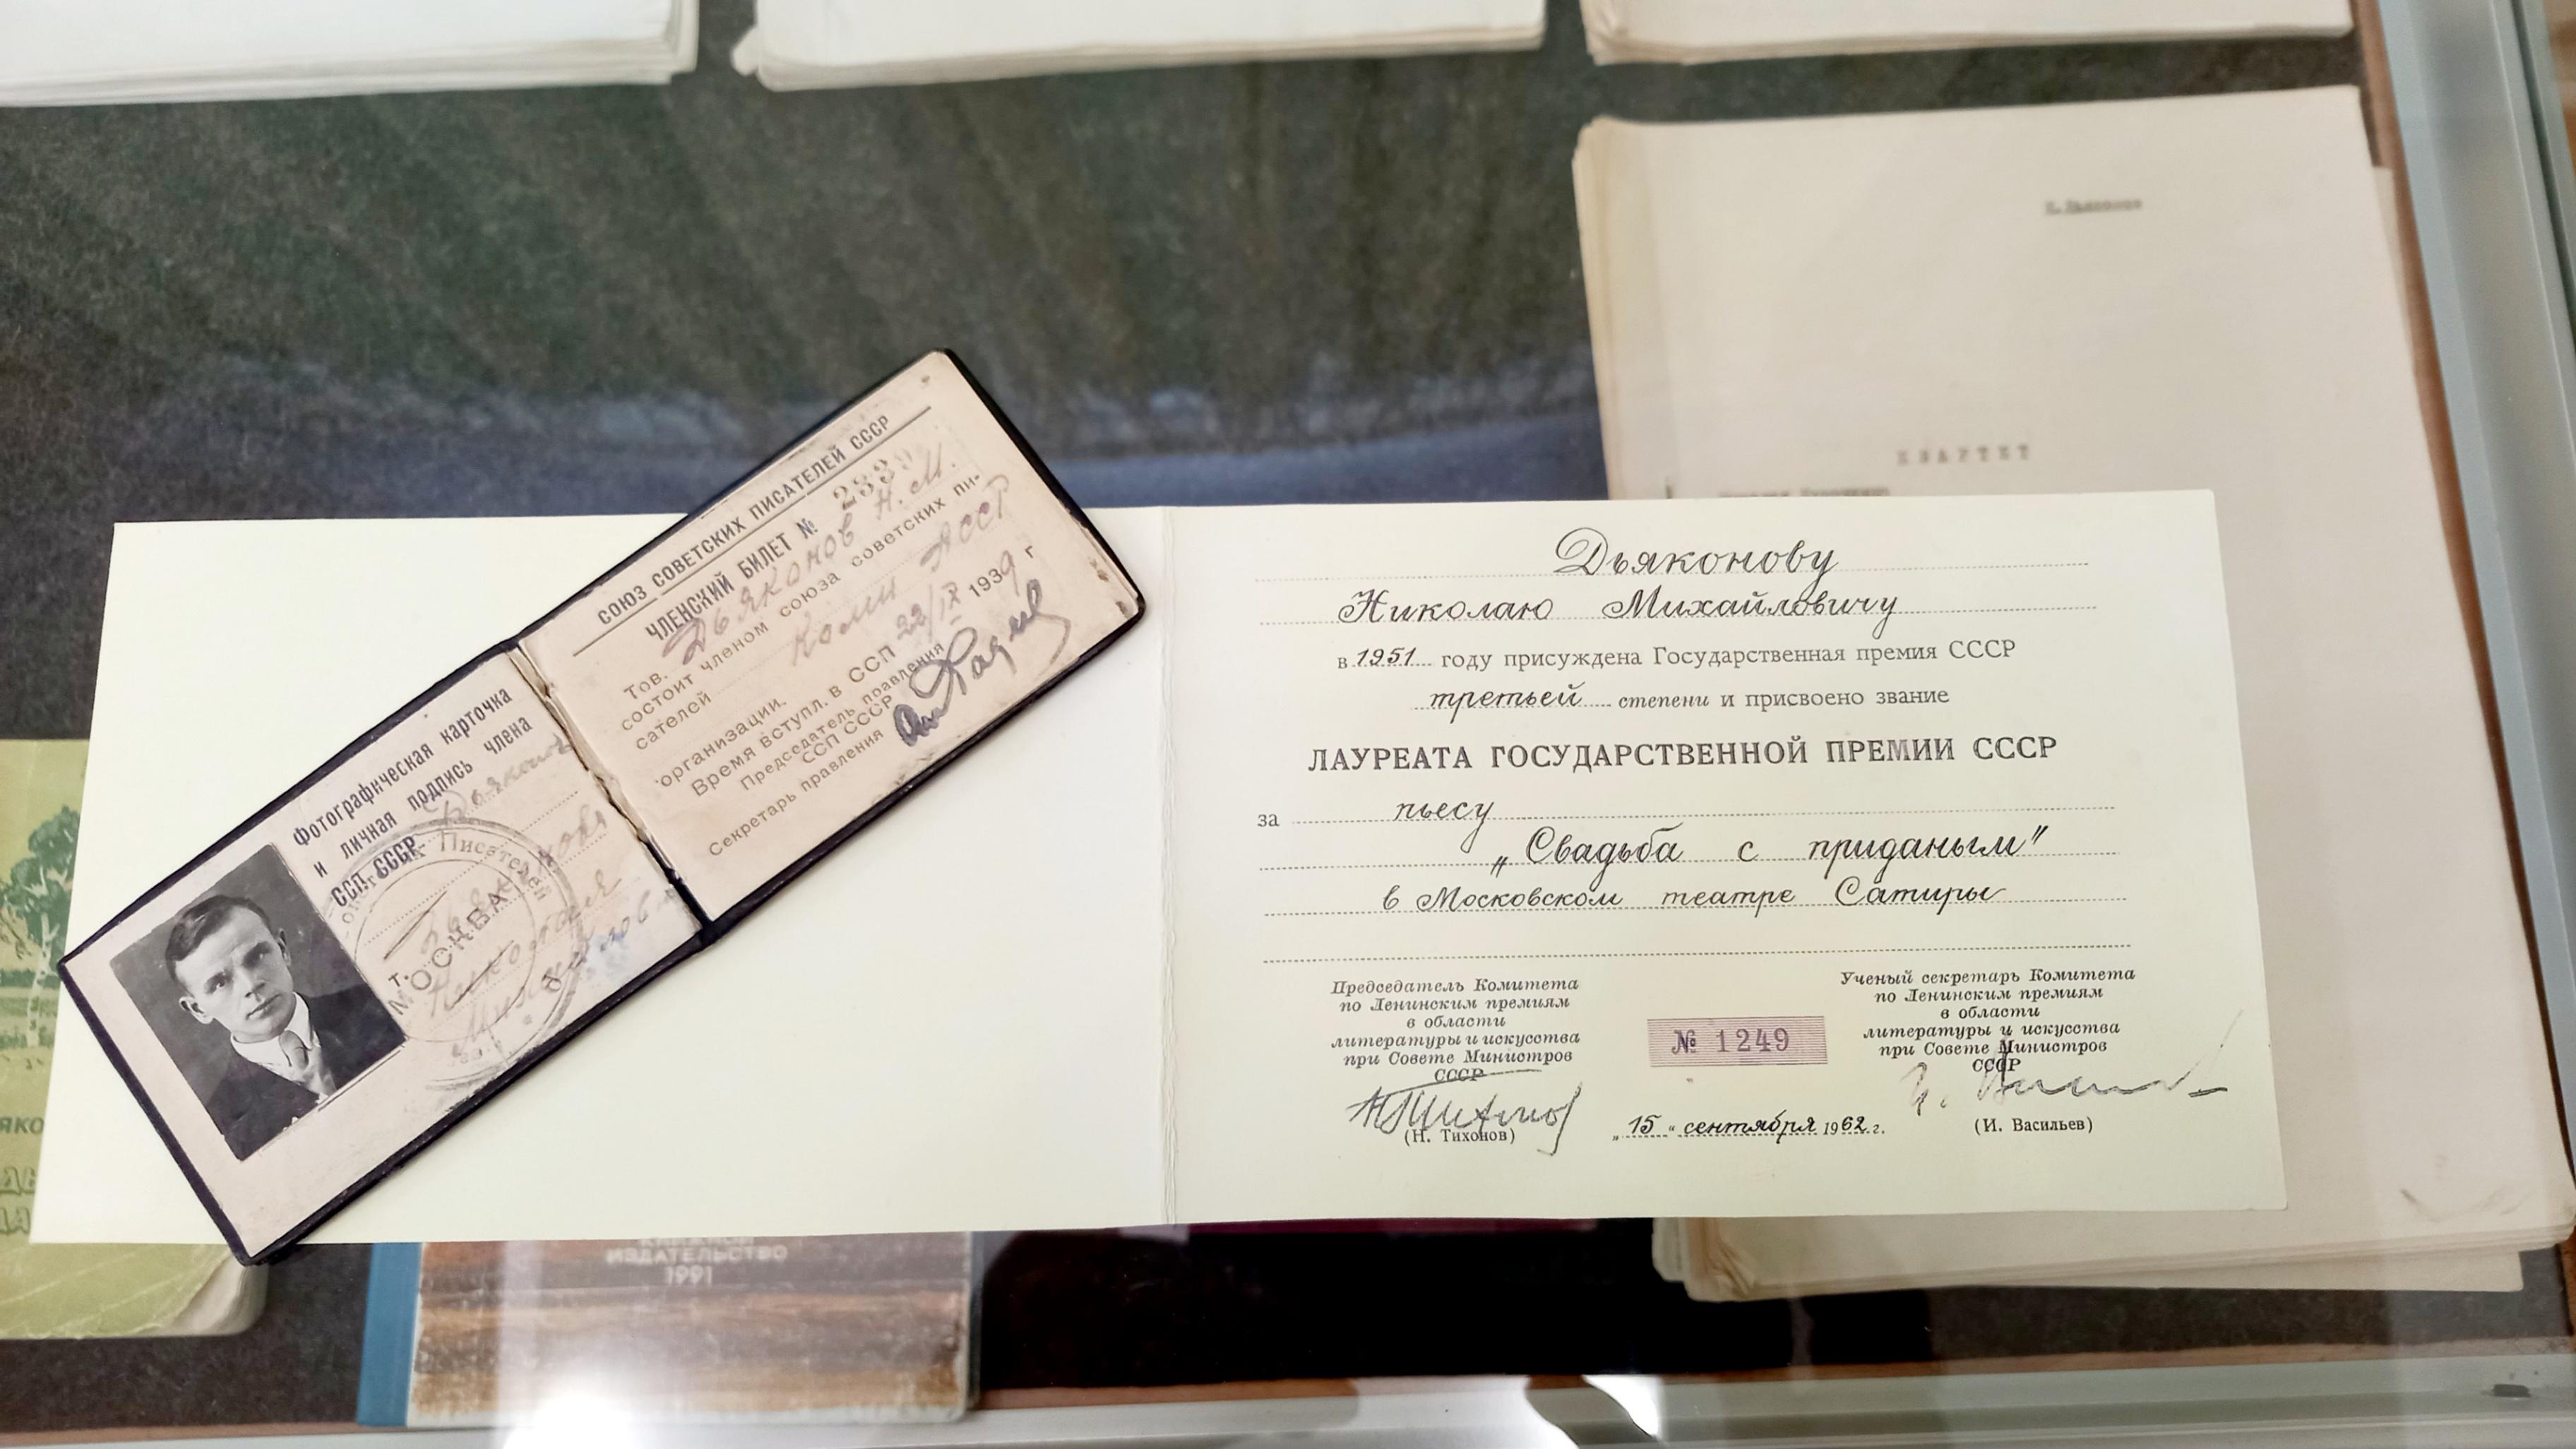 КВАРТЕТ
СОЮЗ СОВЕТСКИХ ПИСАТЕЛЕЙ СССР
ЧЛЕНСКИЙ БИЛЕТ № 2339
Тов. Дьяконов Н. М.
состоит членом союза советских пи-
сателей Коми АССР
организации.
Время вступл. в ССП 22/IX 1939 г
Председатель правления
ССП СССР
Секретарь правления
Фотографическая карточка
и личная подпись члена
ССП СССР
Писателей
г. МОСКВА
Дьяконову
Николаю Михайловичу
в 1951 году присуждена Государственная премия СССР
третьей степени и присвоено звание
ЛАУРЕАТА ГОСУДАРСТВЕННОЙ ПРЕМИИ СССР
за пьесу
„Свадьба с приданым"
в Московском театре Сатиры
Председатель Комитета
по Ленинским премиям
в области
литературы и искусства
при Совете Министров
СССР
(Н. Тихонов)
№ 1249
„15" сентября 1962 г.
Ученый секретарь Комитета
по Ленинским премиям
в области
литературы и искусства
при Совете Министров
СССР
(И. Васильев)
ИЗДАТЕЛЬСТВО
1991